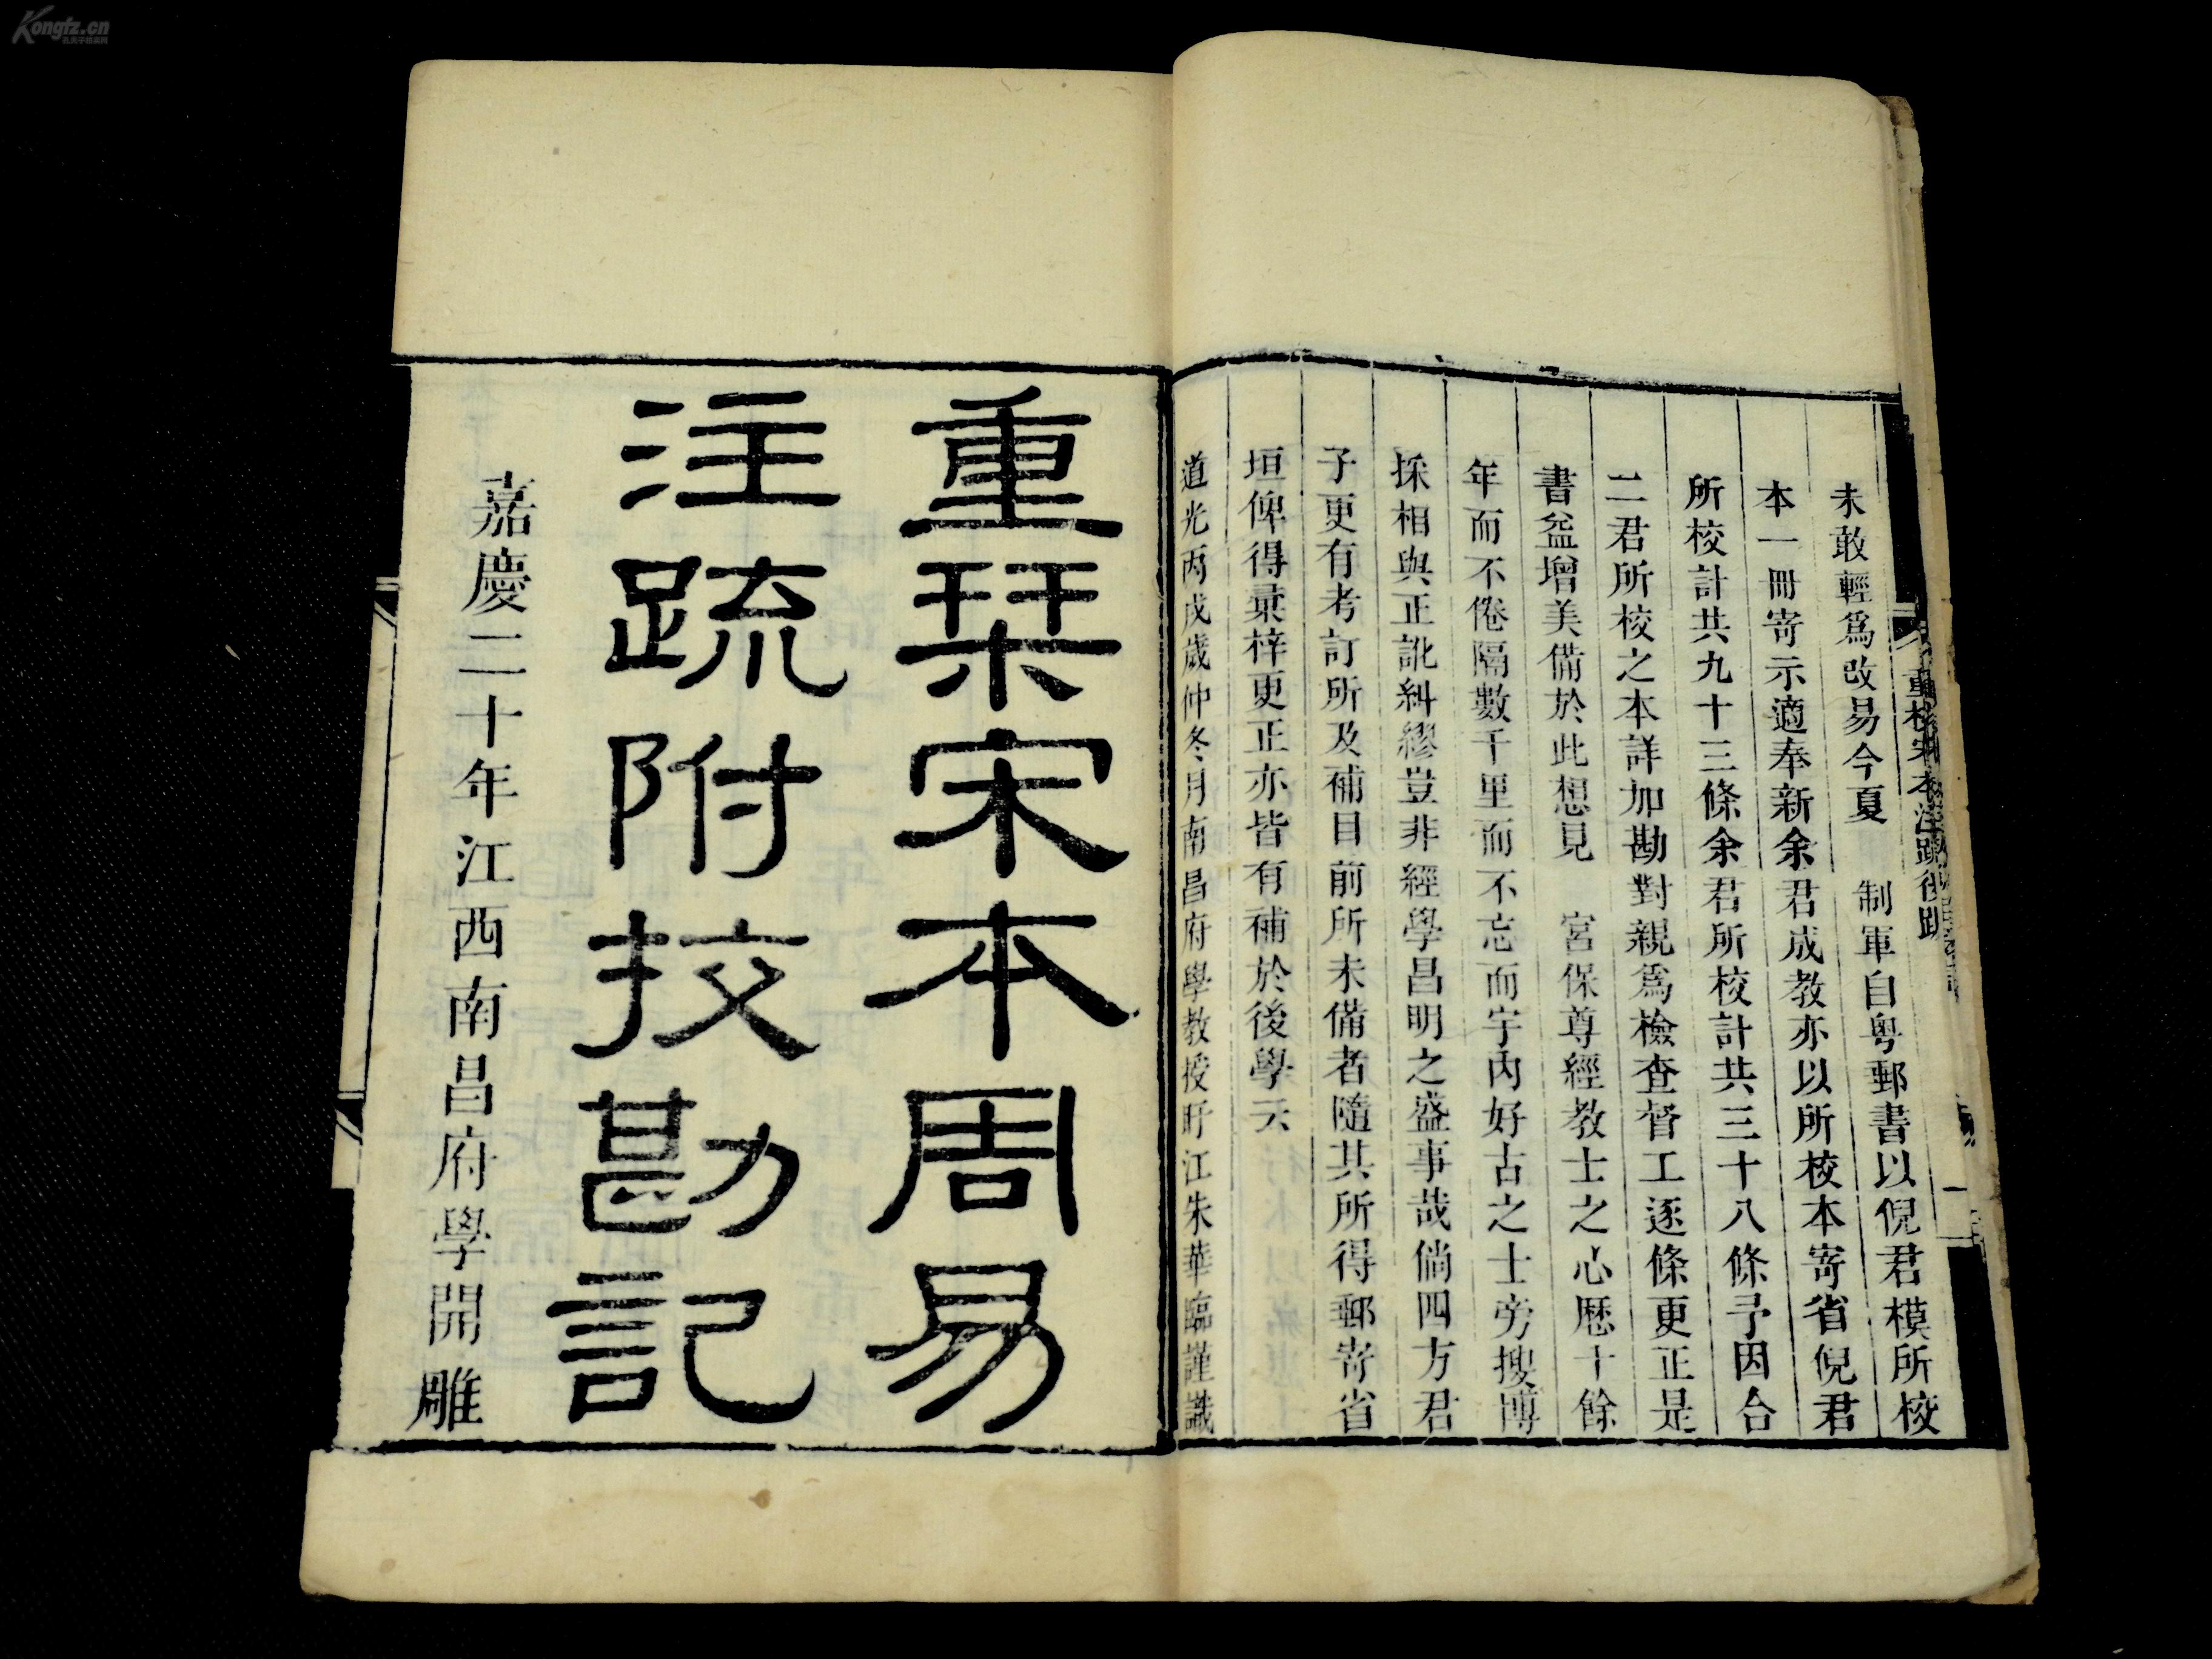 重校宋本注疏後跋
未敢輕爲改易今夏　制軍自粤郵書以倪君模所校
本一冊寄示適奉新余君成教亦以所校本寄省倪君
所校計共九十三條余君所校計共三十八條予因合
二君所校之本詳加勘對親爲檢查督工逐條更正是
書益增美備於此想見　宮保尊經教士之心歷十餘
年而不倦隔數千里而不忘而宇內好古之士旁搜博
採相與正訛糾繆豈非經學昌明之盛事哉倘四方君
子更有考訂所及補目前所未備者隨其所得郵寄省
垣俾得彙梓更正亦皆有補於後學云
道光丙戌歲仲冬月南昌府學教授盱江朱華臨謹識
重栞宋本周易
注疏附挍勘記
嘉慶二十年江西南昌府學開雕
Kongfz.cn
孔夫子旧书网